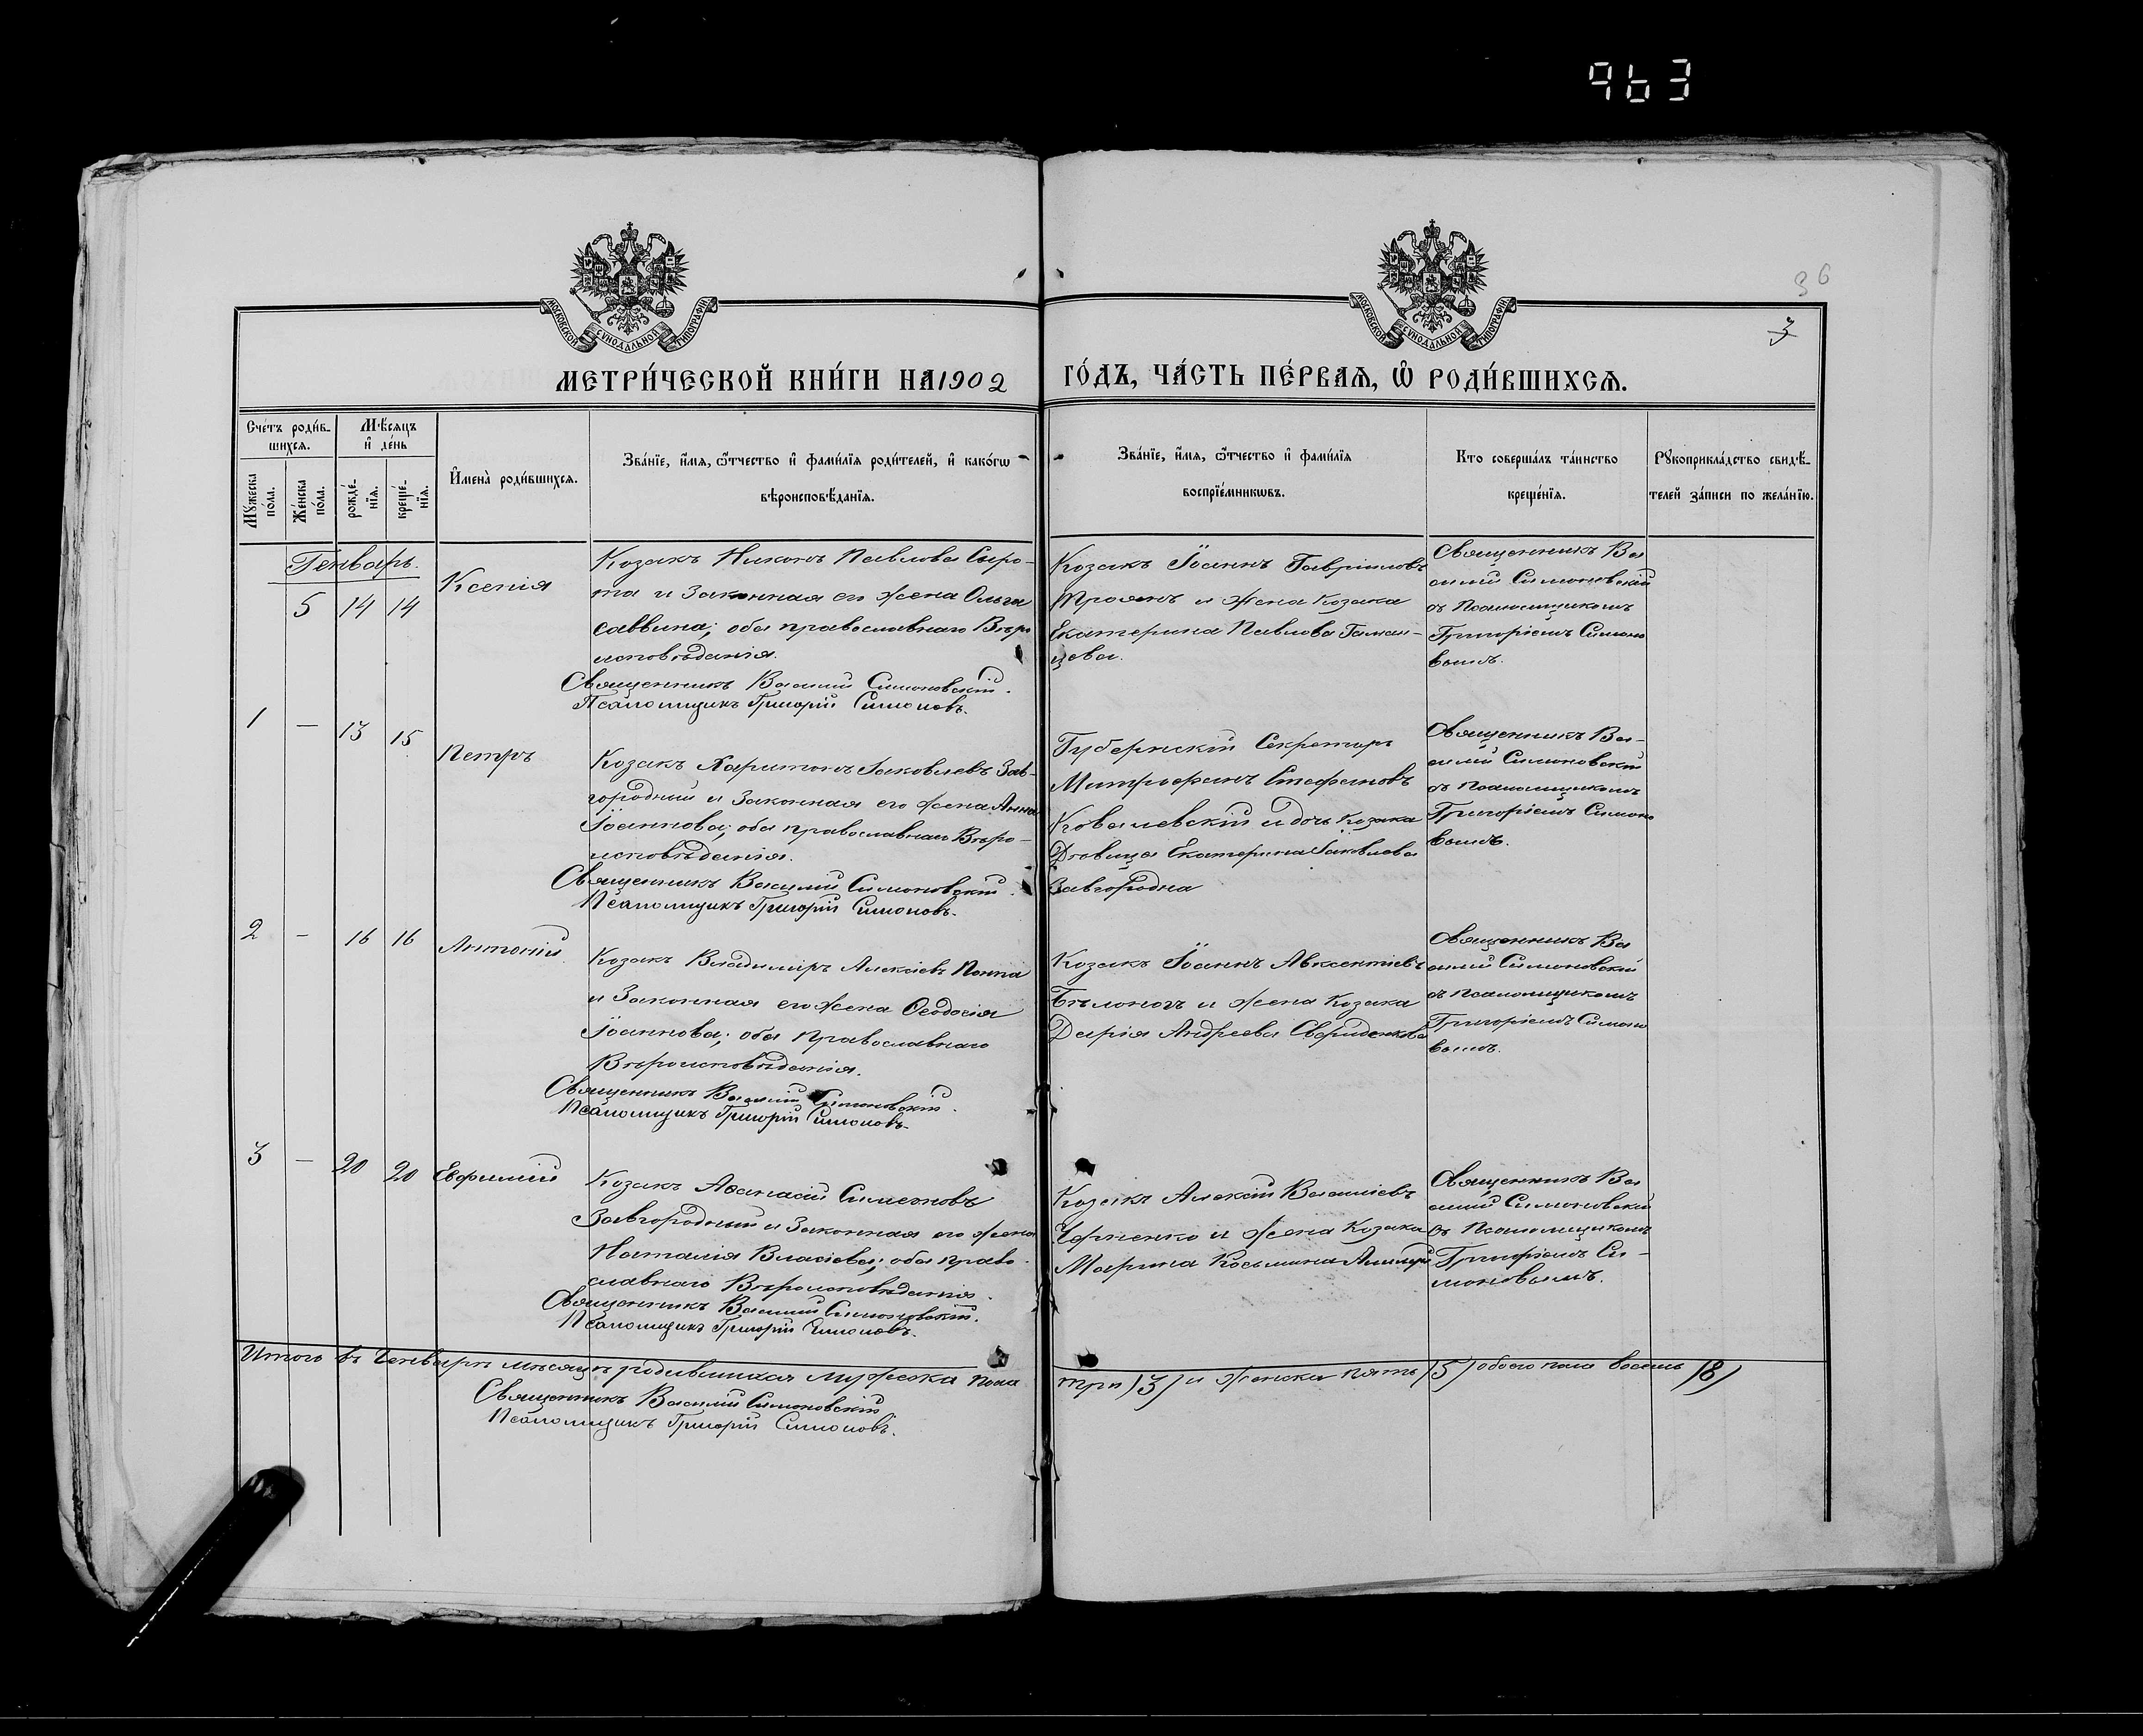 963
36
3
МОСКОВСКОЙ СѴНОДАЛЬНОЙ ТИПОГРАФІИ
МОСКОВСКОЙ СѴНОДАЛЬНОЙ ТИПОГРАФІИ
МЕТРИ́ЧЕСКОЙ КНИ́ГИ НА 1902 ГО́ДЪ, ЧА́СТЬ ПЕ́РВАѦ, Ѡ҆ РОДИ́ВШИХСѦ.
Сче́тъ роди́в-
шихся.
Мѣ́сяцъ
и҆ де́нь
Мꙋ́жеска
по́ла.
Же́нска
по́ла.
рожде́-
нїѧ.
креще́-
нїѧ.
И҆мена̀ роди́вшихсѧ.
Зва́нїе, и҆́мѧ, ѻ҆́тчество и҆ фами́лїѧ роди́телей, и҆ како́гѡ
вѣроисповѣ́данїѧ.
Зва́нїе, и҆́мѧ, ѻ҆́тчество и҆ фами́лїѧ
воспрїе́мникѡвъ.
Кто соверша́лъ та́инство
креще́нїѧ.
Рꙋкоприкла́дство свидѣ́-
телей за́писи по жела́нїю.
Генварь.
5 14 14
Ксенія
Козакъ Никонъ Павловъ Сыро-
та и Законная его жена Ольга
Саввина; оба православнаго Вѣро
исповѣданія.
Священникъ Василій Симоновскій.
Псаломщикъ Григорій Симоновъ.
Козакъ Іоаннъ Гавріиловъ
Троянъ и жена Козака
Екатерина Павлова
Священникъ Ва
силій Симоновскій
съ Псаломщикомъ
Григоріемъ Симоно
вымъ.
1 — 13 15
Петръ
Козакъ Харитонъ Іаковлевъ Зав-
городный и Законная его жена Анна
Іоаннова; оба православнаго Вѣро-
исповѣданія.
Священникъ Василій Симоновскій.
Псаломщикъ Григорій Симоновъ.
Губернскій Секретарь
Митрофанъ Стефановъ
Ковалевскій и дочь Козака
Дѣвица Екатерина Іаковлева
Завгородна
Священникъ Ва-
силій Симоновскій
съ Псаломщикомъ
Григоріемъ Симоно
вымъ.
2 — 16 16
Антоній
Козакъ Владиміръ Алексіевъ Попка
и Законная его жена Ѳеодосія
Іоаннова; оба Православнаго
Вѣроисповѣданія.
Священникъ Василій Симоновскій.
Псаломщикъ Григорій Симоновъ.
Козакъ Іоаннъ Авксентіевъ
Бѣлоногъ и жена Козака
Дарія Андреева Свериденкова
Священникъ Ва
силій Симоновскій
съ Псаломщикомъ
Григоріемъ Симоно
вымъ.
3 — 20 20
Евфимій
Козакъ Аѳанасій Симеоновъ
Завгородный и Законная его жена
Наталія Власіева; оба право-
славнаго Вѣроисповѣданія.
Священникъ Василій Симоновскій.
Псаломщикъ Григорій Симоновъ.
Козакъ Алексій Василіевъ
и жена Козака
Марина Косьмина
Священникъ Ва
силій Симоновскій
съ Псаломщикомъ
Григоріемъ Си-
моновымъ.
Итого въ Генварѣ мѣсяцѣ родившихся мужеска пола три (3) и женска пять (5) обоего пола восемь (8)
Священникъ Василій Симоновскій
Псаломщикъ Григорій Симоновъ.